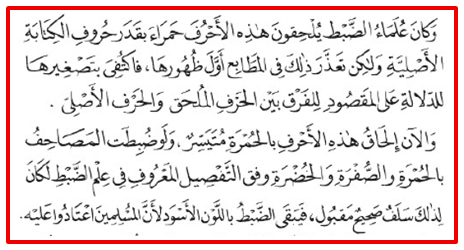 وَكَانَ عُلَمَاءُ الضَّبْطِ يُلْحِقُونَ هَٰذِهِ الْأَحْرُفَ حَمْرَاءَ بِقَدَرِ حُرُوفِ الْكِتَابَةِ
الْأَصْلِيَّةِ وَلَٰكِنْ تَعَذَّرَ ذَٰلِكَ فِي الْمَطَابِعِ أَوَّلَ ظُهُورِهَا، فَاكْتُفِيَ بِتَصْغِيرِهَا
لِلدَّلَالَةِ عَلَى الْمَقْصُودِ لِلْفَرْقِ بَيْنَ الْحَرْفِ الْمُلْحَقِ وَالْحَرْفِ الْأَصْلِيِّ .
وَالْآنَ إِلْحَاقُ هَٰذِهِ الْأَحْرُفِ بِالْحُمْرَةِ مُتَيَسِّرٌ. وَلَوْ ضُبِطَتِ الْمَصَاحِفُ
بِالْحُمْرَةِ وَالصُّفْرَةِ وَالْخُضْرَةِ وَفْقَ التَّفْصِيلِ الْمَعْرُوفِ فِي عِلْمِ الضَّبْطِ لَكَانَ
لِذَٰلِكَ سَلَفٌ صَحِيحٌ مَقْبُولٌ، فَيَبْقَى الضَّبْطُ بِاللَّوْنِ الْأَسْوَدِ لِأَنَّ الْمُسْلِمِينَ اعْتَادُوا عَلَيْهِ.